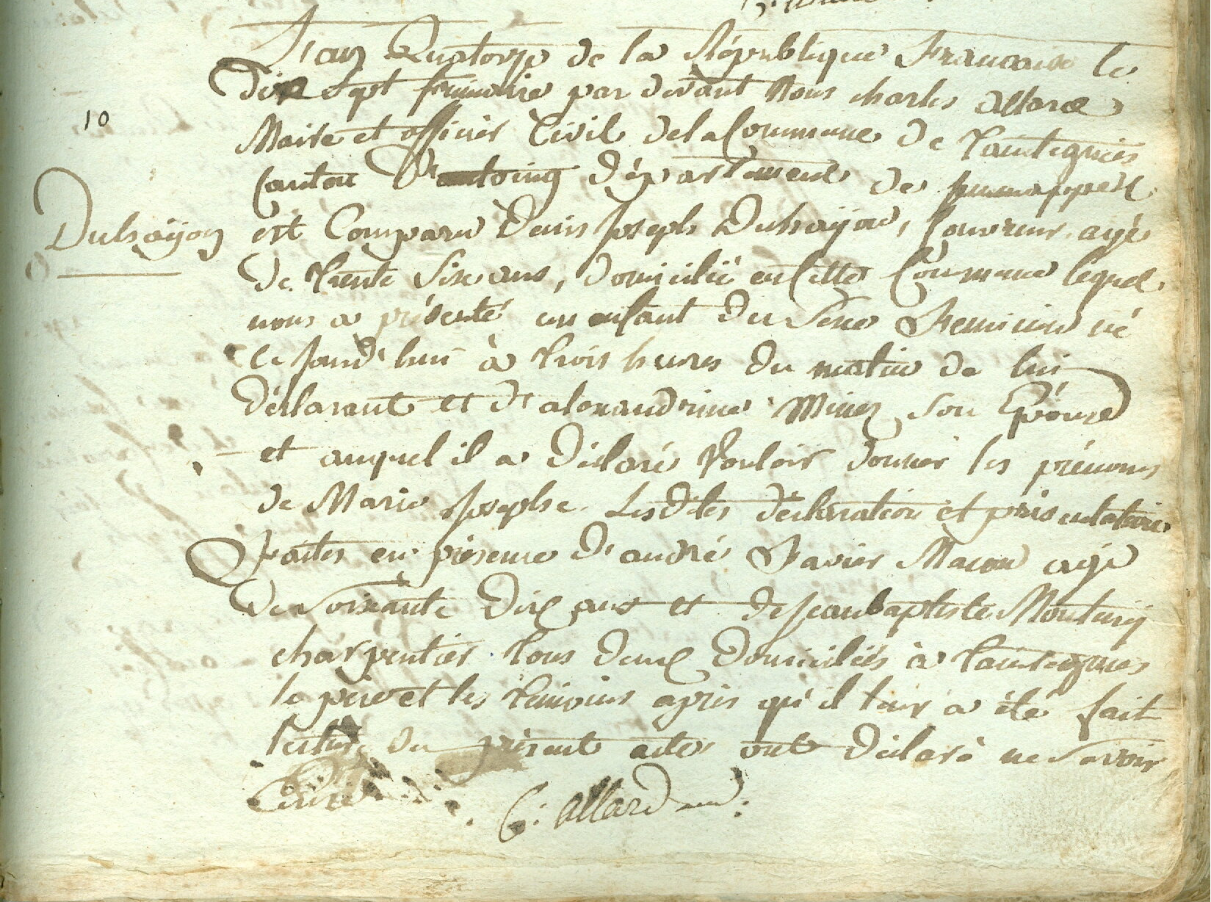 10
Duhayon
L'an Quatorze de la République Francaise le
Dix Sept frimaire par devant Nous charles allard
Maire et officier Civil dela Commune de Taintegnies
Canton D'antoing Département de Jemmappes
est Comparu Denis Joseph Duhayon, Couvreur, agé
de trente Six ans, domicilié en Cette Commune lequel
nous a présenté un enfant du Sexe Feminin né
ce Jourd'hui à trois heures du matin de lui
déclarant et d'alexandrine Minez son Epouse
et auquel il a déclaré Vouloir donner les prénoms
de Marie Josephe. Lesdites déclaration et présentation
faites en présence d'andré Xavier Macou agé
de Soixante Dix ans et de Jean baptiste
charpentier tous deux Domiciliés à taintegnies
le père et les témoins après qu'il leur a été fait
lecture du présent acte ont déclaré ne Savoir
Ecrire
C: allard